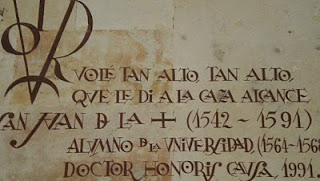 VOLÉ TAN ALTO, TAN ALTO,
QUE LE DI A LA CAZA ALCANCE.
SAN JUAN DE LA + (1542 - 1591)
ALVMNO DE LA VNIVERSIDAD, (1564-1568
DOCTOR HONORIS CAVSA, 1991.